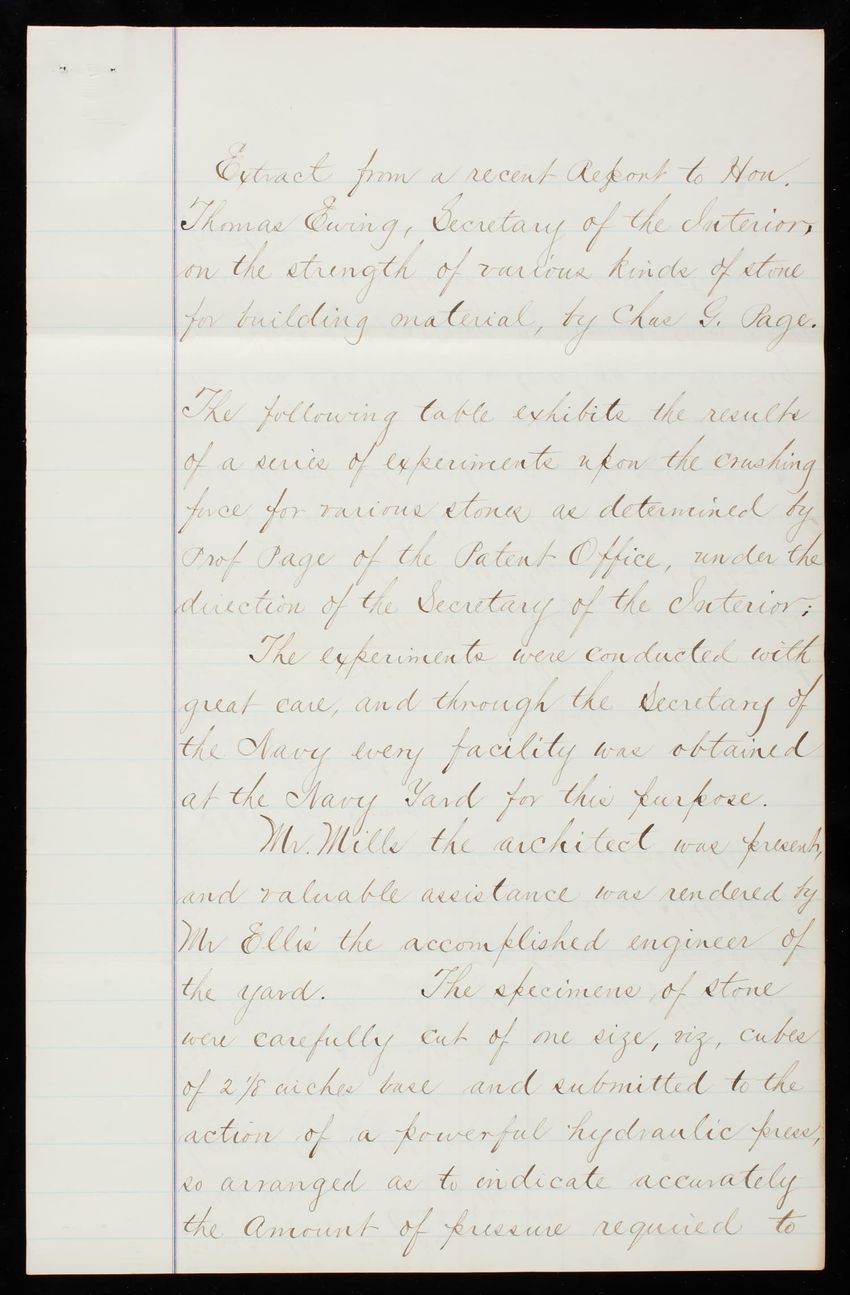 Extract from a recent Report to Hon.
Thomas Ewing, Secretary of the Interior,
on the strength of various kinds of stone
for building material, by Chas G. Page.
The following table exhibits the results
of a series of experiments upon the crushing
force for various stones as determined by
Prof Page of the Patent Office, under the
direction of the Secretary of the Interior;
The experiments were conducted with
great care, and through the Secretary of
the Navy every facility was obtained
at the Navy Yard for this purpose.
Mr. Mills the architect was present,
and valuable assistance was rendered by
Mr Ellis the accomplished engineer of
the yard. The specimens of stone
were carefully cut of one size, viz, cubes
of 2 1/8 inches base and submitted to the
action of a powerful hydraulic press,
so arranged as to indicate accurately
the Amount of pressure required to